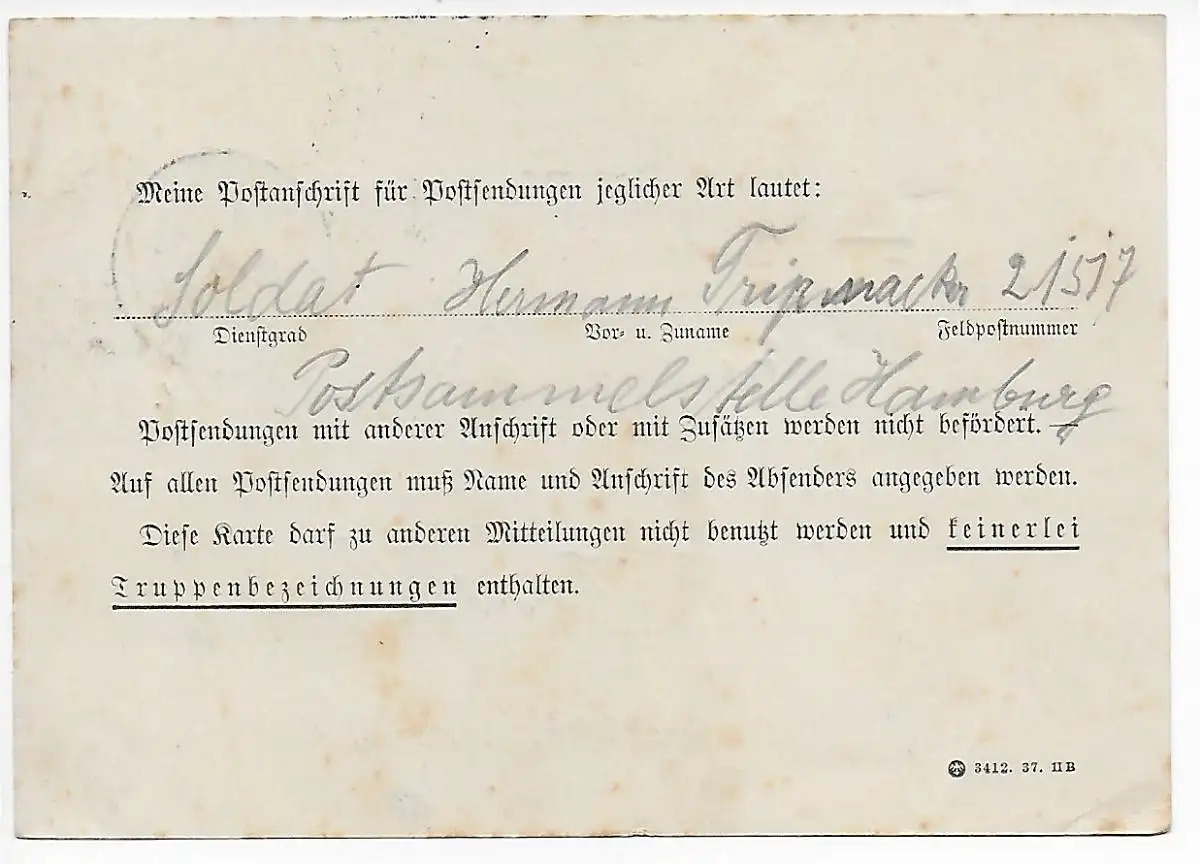 Meine Postanschrift für Postsendungen jeglicher Art lautet:
Soldat Hermann Tripmacker 21517
Dienstgrad Vor- u. Zuname Feldpostnummer
Postsammelstelle Hamburg
Postsendungen mit anderer Anschrift oder mit Zusätzen werden nicht befördert. —
Auf allen Postsendungen muß Name und Anschrift des Absenders angegeben werden.
Diese Karte darf zu anderen Mitteilungen nicht benutzt werden und keinerlei
Truppenbezeichnungen enthalten.
3412. 37. II B